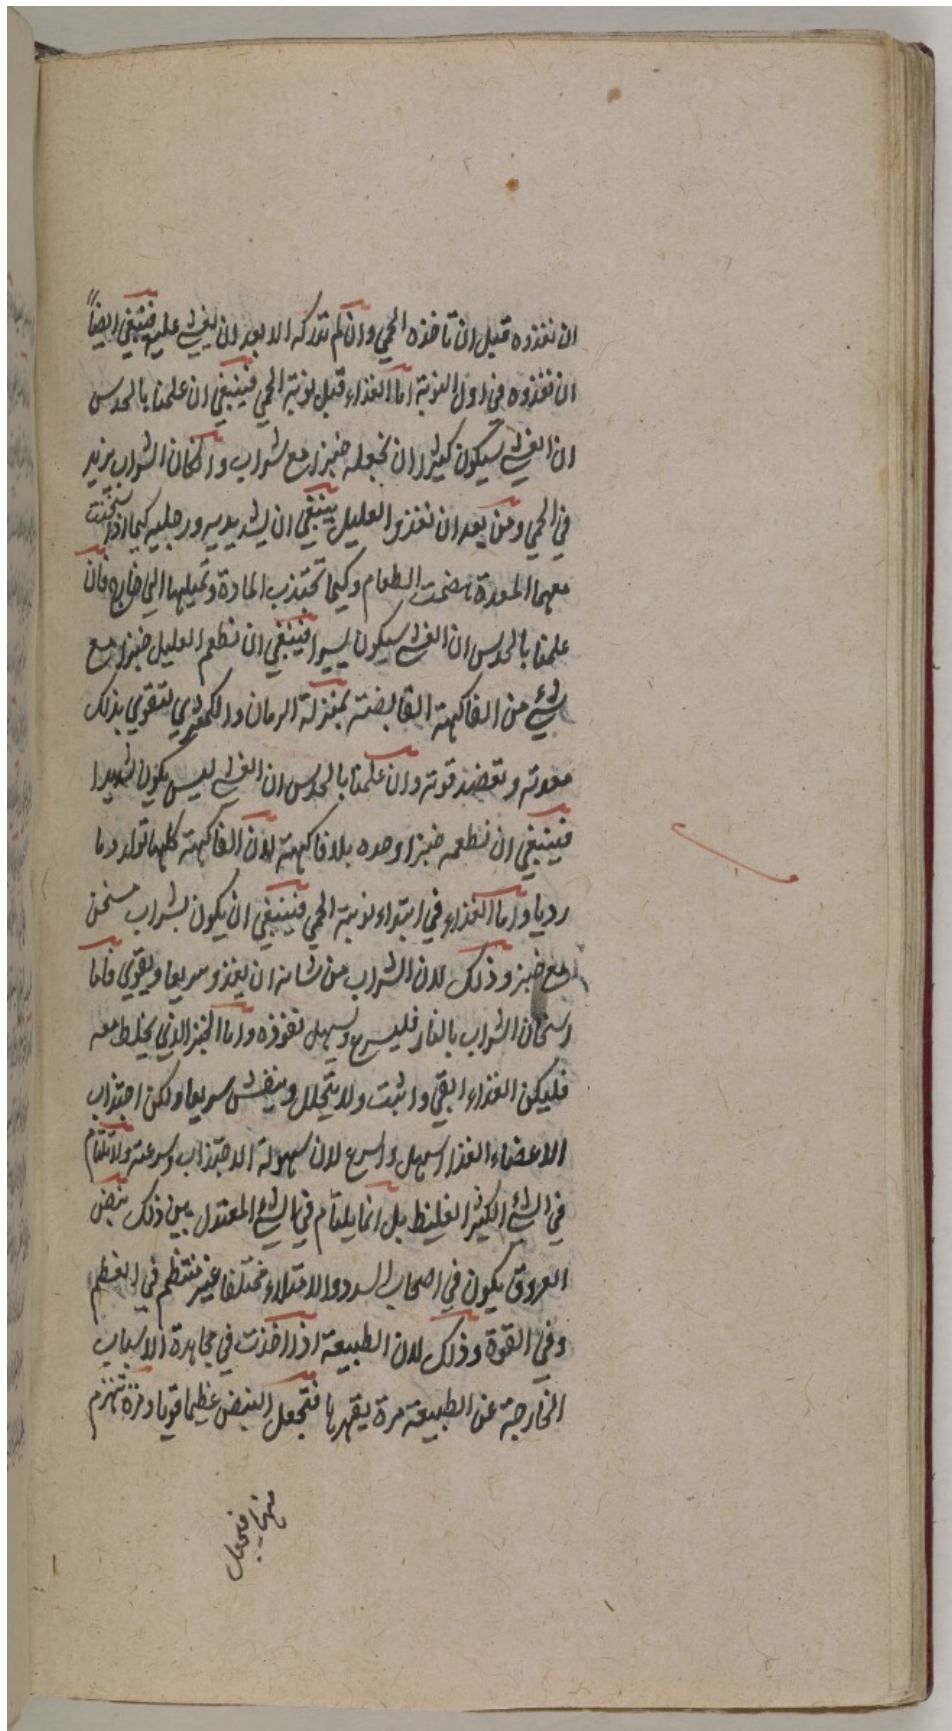 ان نغذوه قبل ان تاخذه الحمي وان لم ندركه الا بعد ان يغشي عليه فينبغي ايضاً
ان نغذوه في اول النوبة اما الغذاء قبل نوبة الحمي فينبغي ان علمنا بالحدس
ان الغشي سيكون كثيرا ان نجعله خبزا مع شراب وان كان الشراب يزيد
في الحمي ومن بعد ان نغذو العليل ينبغي ان يشد يديه ورجليه كيما اذا سخنت
معها المعدة هضمت الطعام وكيما تجتذب المادة وتميلها الي خارج فان
علمنا بالحدس ان الغشي سيكون يسيرا فينبغي ان نطعم العليل خبزا مع
شيء من الفاكهة القابضة بمنزلة الرمان والكمثري لتقوي بذلك
معدته وتعضد قوته وان علمنا بالحدس ان الغشي ليس يكون شديدا
فينبغي ان نطعمه خبزا وحده بلا فاكهة لان الفاكهة كلها تولد دما
رديا واما الغذاء في ابتداء نوبة الحمي فينبغي ان يكون بشراب مسخن
مع خبز وذلك لان الشراب من شانه ان يغذو سريعا ويقوي فاما
اسخان الشراب بالنار فليسرع ويسهل نفوذه واما الخبز الذي يخلط معه
فليكن الغذاء ابقي واثبت ولا يتحلل وينفش سريعا ولكن اجتذاب
الاعضاء الغذا اسهل واسرع لان سهولة الاجتذاب وسرعته ولا تلتام
في الشيء الكثير الغليظ بل انما يلتام في الشيء المعتدل بين ذلك نبض
العروق يكون في اصحاب السدد والامتلاء مختلفا غير منتظم في العظم
وفي القوة وذلك لان الطبيعة اذا اخذت في مجاهدة الاسباب
الخارجة عن الطبيعة مرة يقهرها فتجعل النبض عظيما قويا ومرة تنهزم
منها فتجعل